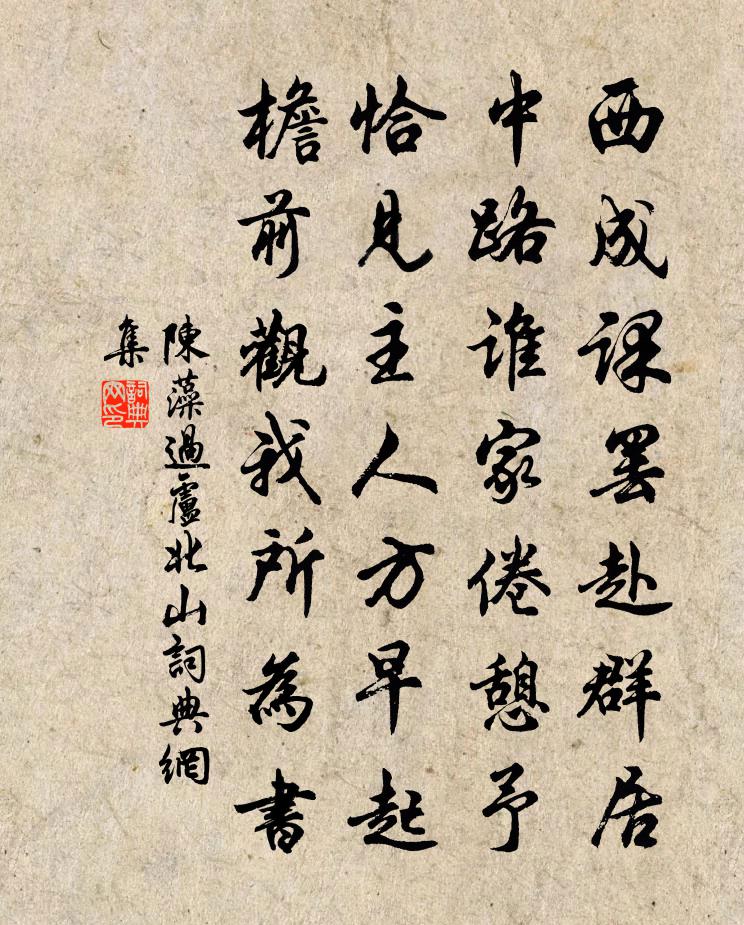 西成課罷赴群居
中路誰家倦憩予
恰見主人方早起
檐前觀我所為書
陳藻過盧北山詞典網
集
詞典
网印